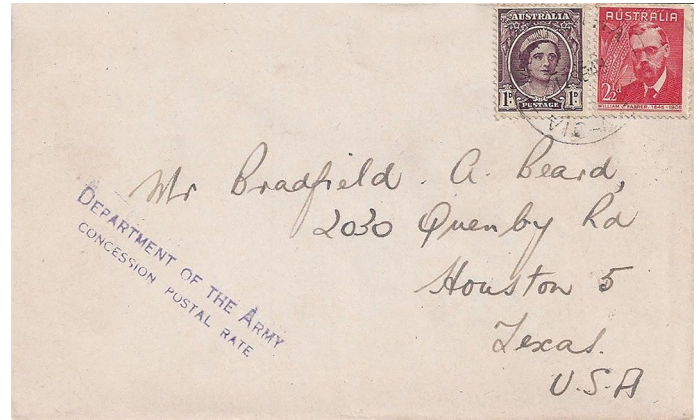 AUSTRALIA
1D POSTAGE 1D
AUSTRALIA
2½D
WILLIAM J. FARRER, 1845-1906
VIC
Mr Bradfield . A. Beard,
2030 Quenby Rd
Houston 5
Texas.
U.S.A
DEPARTMENT OF THE ARMY
CONCESSION POSTAL RATE